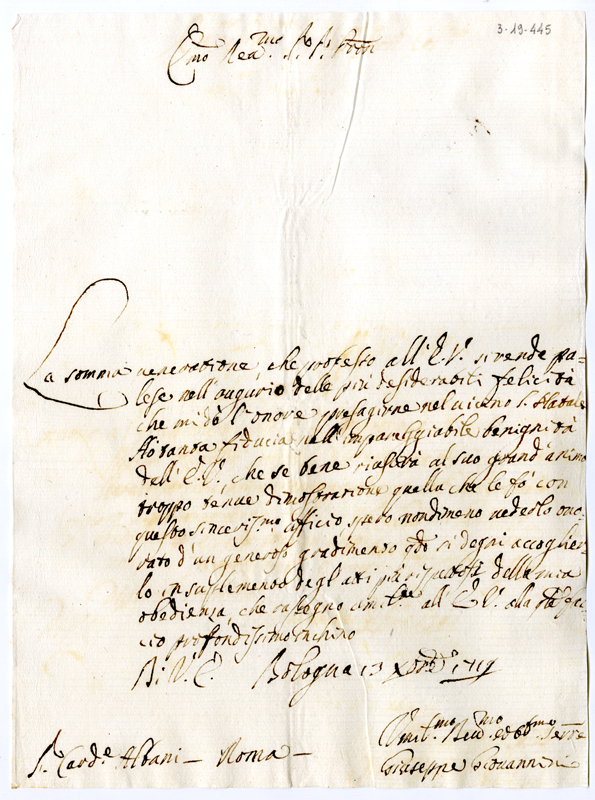 3-19-445
Emo Reamo Sr. Sr. Pron
La somma veneratione, che professo all'E.V. si rende pa-
lese nell'augurio delle più desiderabili felicità
che mi dò l'onore presagirne nel vicino S. Natale
Ho tanta fiducia nell'impareggiabile benignità
dell'E.V., che se bene riuscirà al suo grand'animo
troppo tenue dimostratione quella che le fò con
questo sincerismo ufficio spero nondimeno vederlo ono-
rato d'un generoso gradimento qdo si degni accoglier-
lo in suplemento degl'atti più rispettosi della mia
obedienza, che rassegno umilte all'E.V. alla qle fac-
cio profondissimo inchino
Di V.E. Bologna 13 Xbre 1719
Umilmo Devmo ed Obmo Serre
Sr. Carde Albani - Roma -
Giuseppe Giovannini